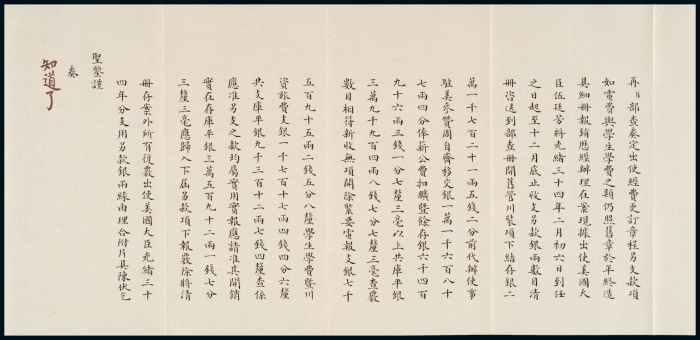 再臣部查奏定出使經費更訂章程另支款項
如電費與學生學費之類仍照舊章於年終造
具細冊報銷歷經辦理在案現據出使美國大
臣伍廷芳將光緒三十四年二月初六日到任
之日起至十二月底止收支另款銀兩數目清
冊咨送到部查冊開舊管川裝項下結存銀二
萬一千七百二十一兩五錢二分前代辦使事
駐美參贊周自齊移交銀一萬一千六百八十
七兩四分俸薪公費扣贖暨餘存銀六千四百
九十六兩三錢一分七釐三毫以上共庫平銀
三萬九千九百四兩八錢七分七釐三毫查覈
數目相符新收無項開除緊要電報支銀七千
五百九十五兩二錢五分八釐學生學費暨川
資旅費支銀一千七百十七兩四錢四分六釐
共支庫平銀九千三百十二兩七錢四釐查係
應准另支之款均屬實用實報應請准其開銷
實在存庫平銀三萬五百九十二兩一錢七分
三釐三毫應歸入下屆另款項下報覈除將清
冊存案外所有覆覈出使美國大臣光緒三十
四年分支用另款銀兩緣由理合附片具陳伏乞
聖鑒謹
奏
知道了